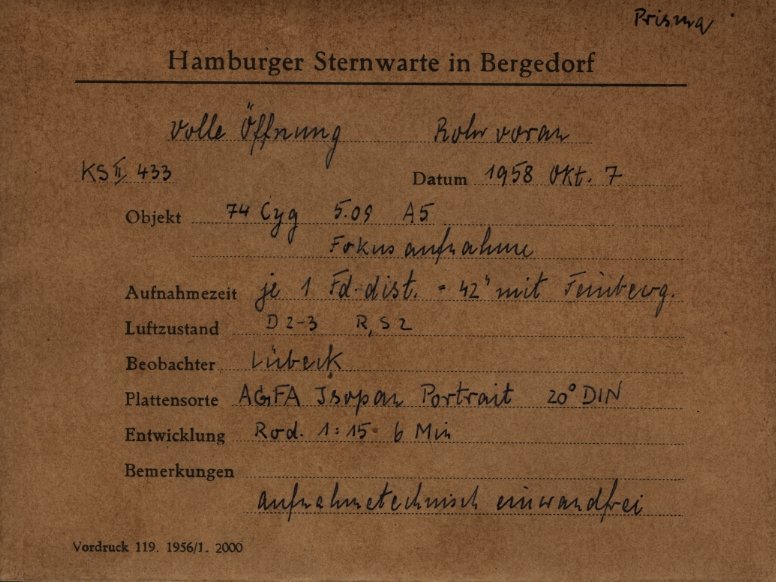 Prisma
Hamburger Sternwarte in Bergedorf
Volle Öffnung Rohr voran
KS II 433 Datum 1958 Okt. 7
Objekt 74 Cyg 5.09 A5
Fokusaufnahme
Aufnahmezeit je 1 Fd-dist. = 42" mit Feinbewg.
Luftzustand D 2-3 R, S 2
Beobachter Lübeck
Plattensorte AGFA Isopan Portrait 20° DIN
Entwicklung Rod. 1:15 6 Min
Bemerkungen
aufnahmetechnisch einwandfrei
Vordruck 119. 1956/1. 2000